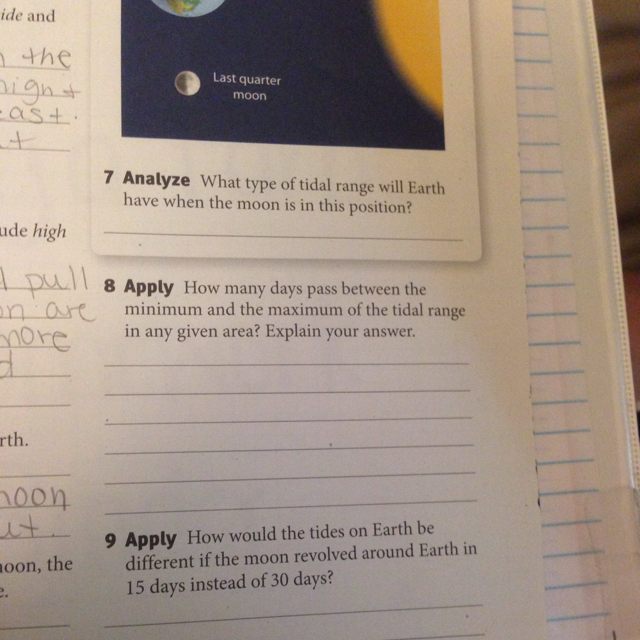 ide and
the
night
east.
Last quarter
moon
7 Analyze What type of tidal range will Earth
have when the moon is in this position?
ude high
pull
are
more
8 Apply How many days pass between the
minimum and the maximum of the tidal range
in any given area? Explain your answer.
rth.
moon
noon, the
e.
9 Apply How would the tides on Earth be
different if the moon revolved around Earth in
15 days instead of 30 days?